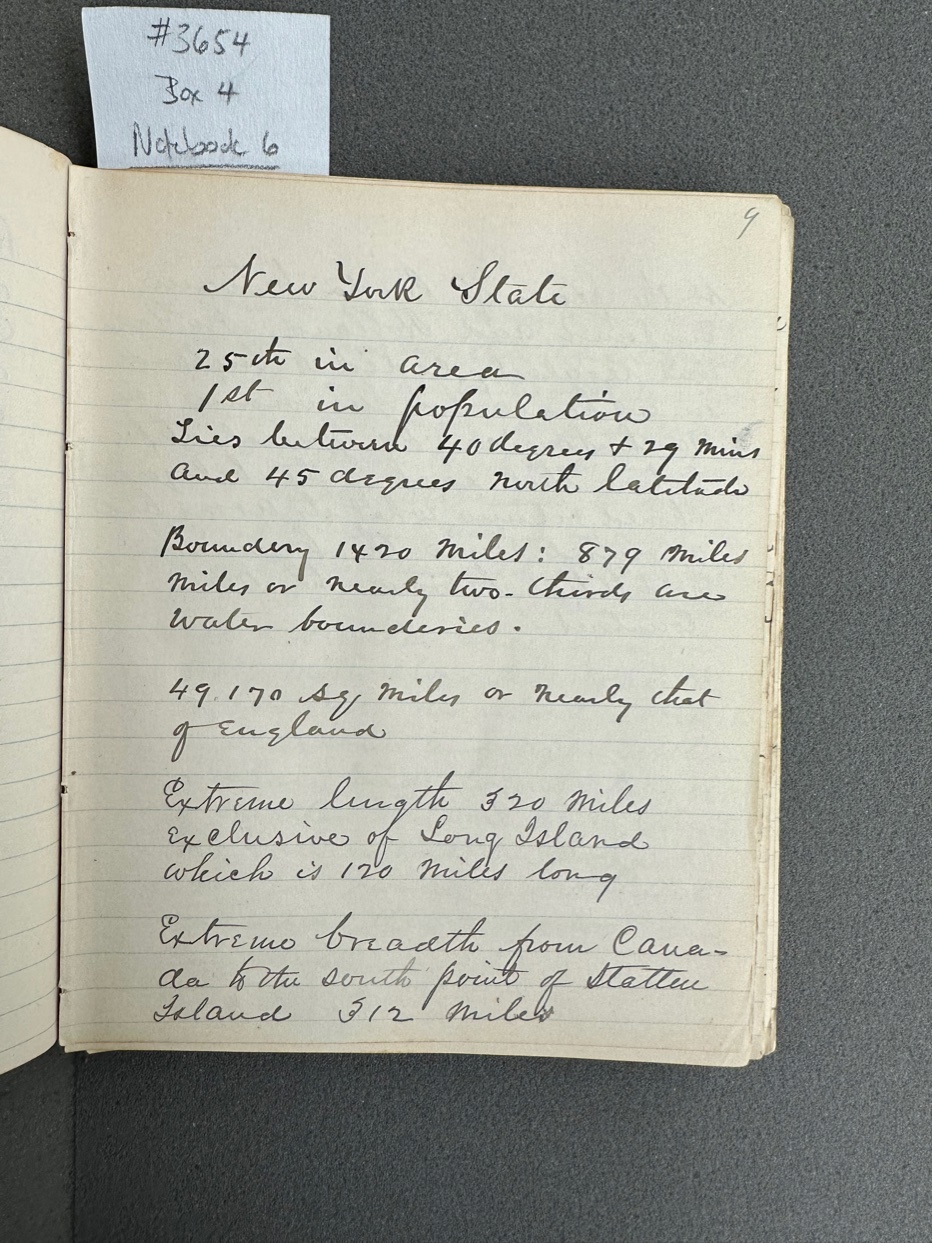 #3654
Box 4
Notebook 6
9
New York State
25th in area
1st in population
Lies between 40 degrees + 29 mins
and 45 degrees north latitude
Boundery 1420 miles: 879 miles
miles or nearly two-thirds are
water bounderies.
49.170 sq miles or nearly that
of England
Extreme length 320 miles
exclusive of Long Island
which is 120 miles long
Extreme breadth from Cana-
da to the south point of Statten
Island 312 miles